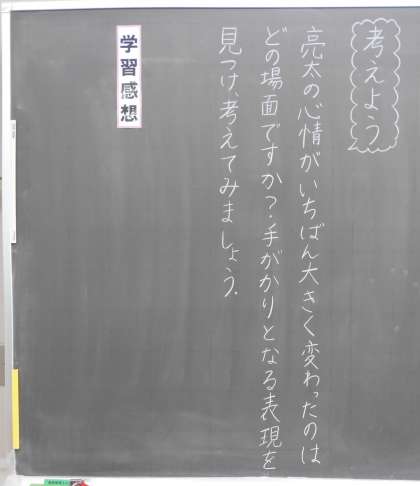 考えよう
亮太の心情がいちばん大きく変わったのは
どの場面ですか?手がかりとなる表現を
見つけ、考えてみましょう。
学習感想